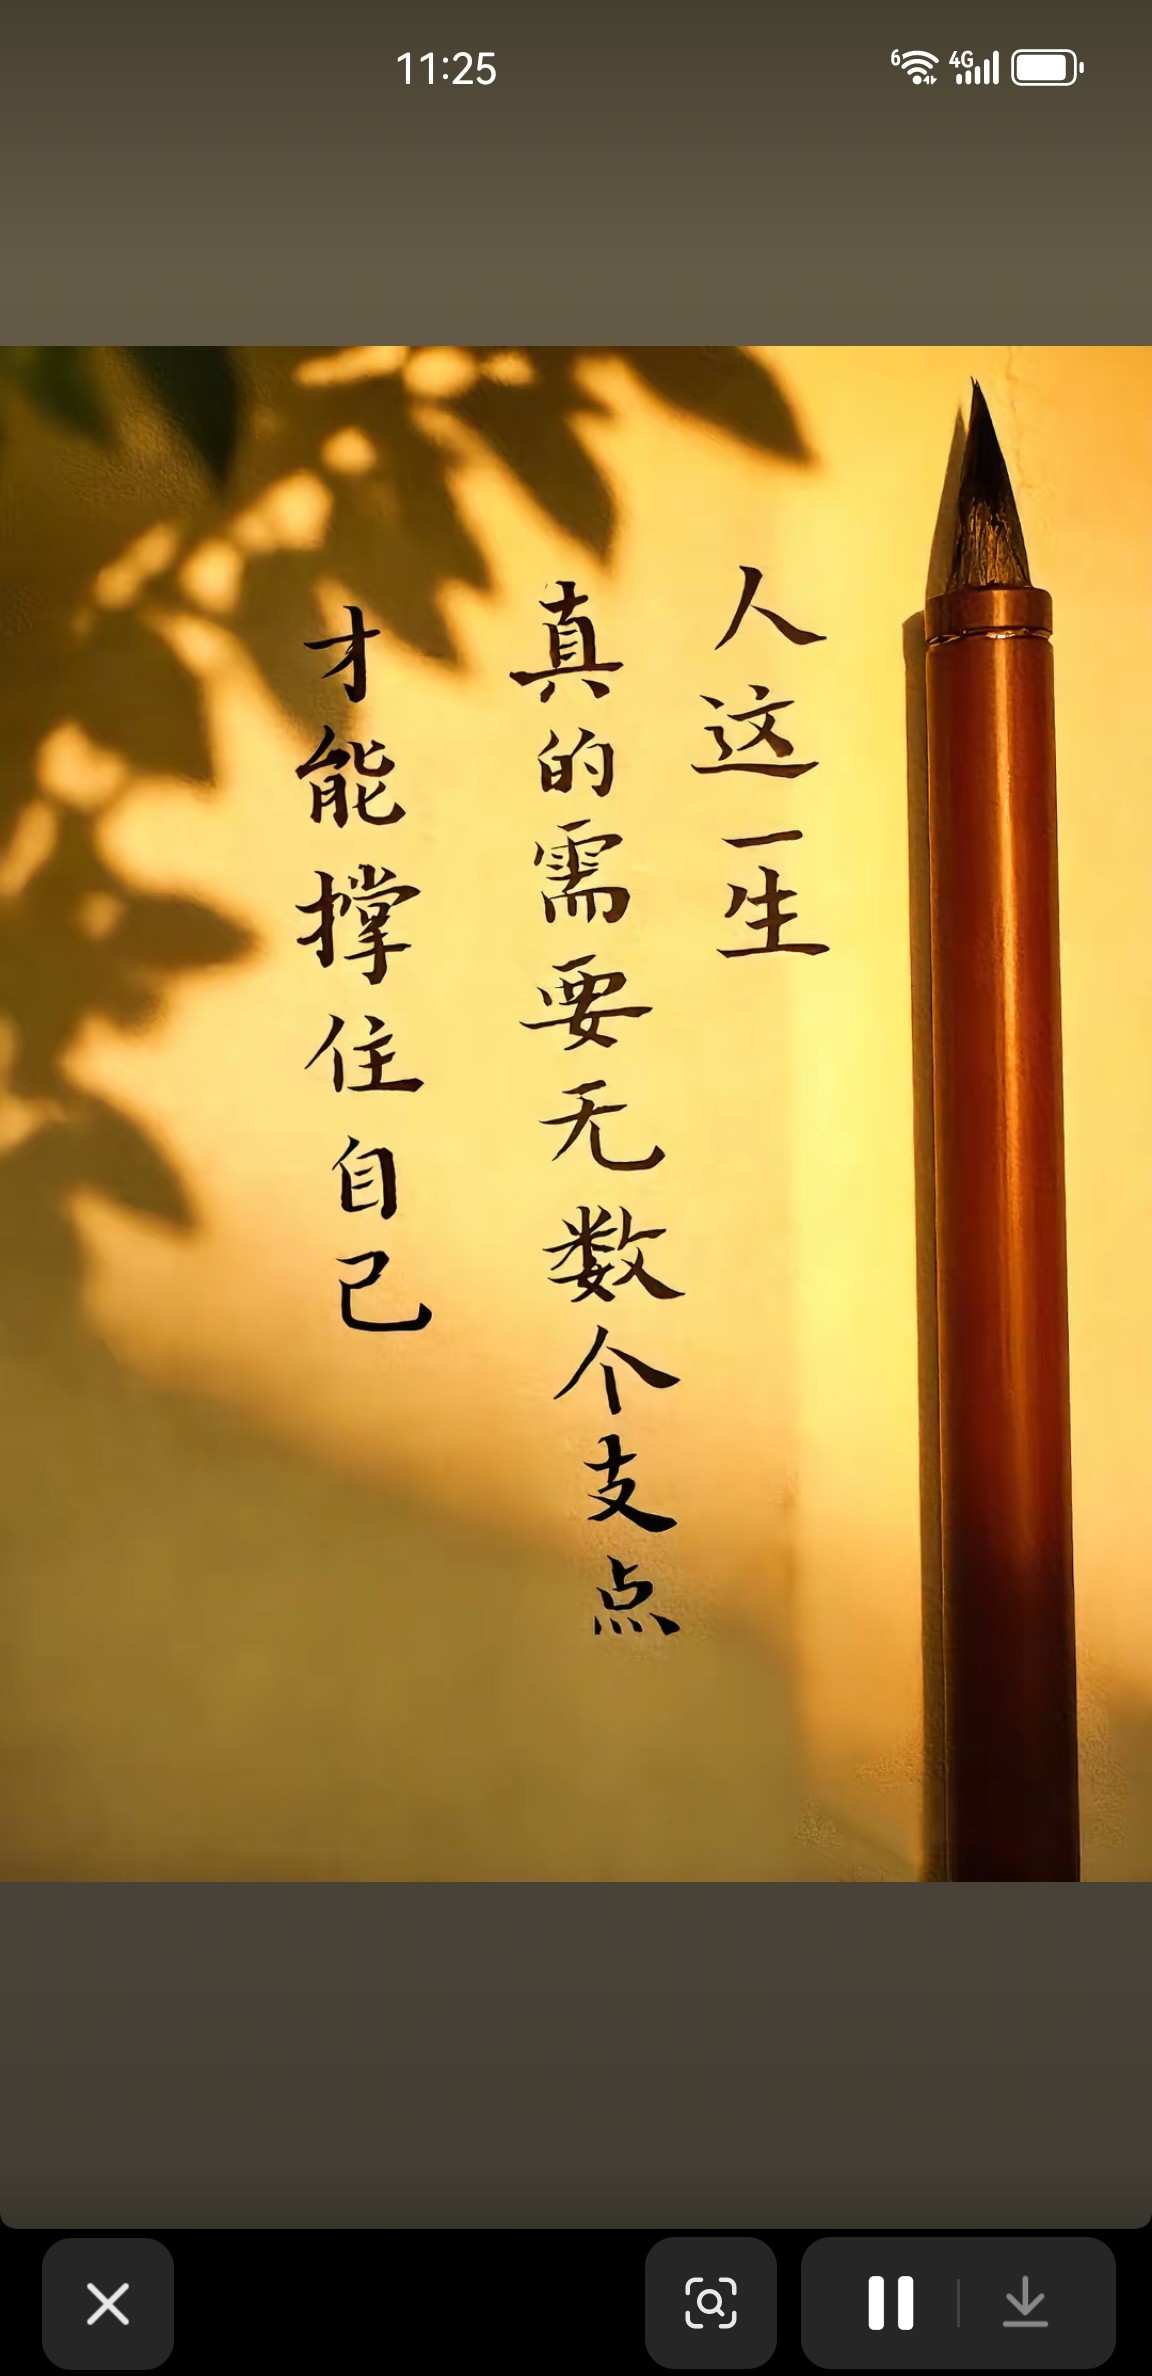 11:25
6
4G
人这一生
真的需要无数个支点
才能撑住自己